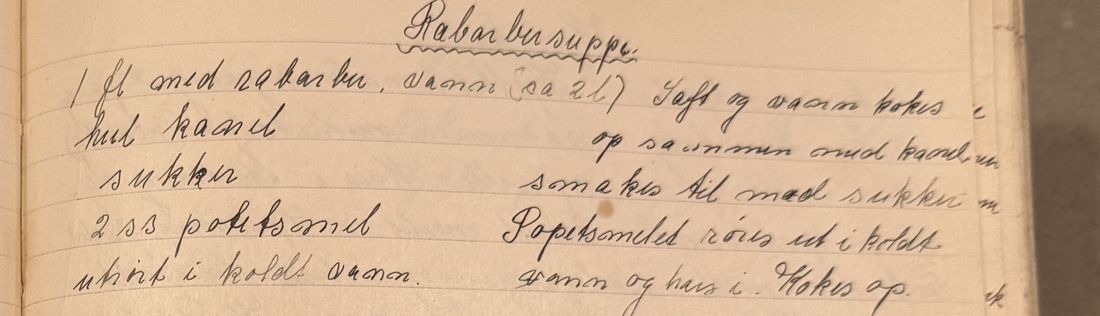 Rabarbersuppe.
1 fl med rabarber, vann (ca 2 l) Saft og vann kokes
hel kanel op sammen med kanel.
sukker smakes til med sukker
2 ss potetsmel Popetsmelet røres ut i koldt
utrørt i koldt vann. vann og haes i. Kokes op.